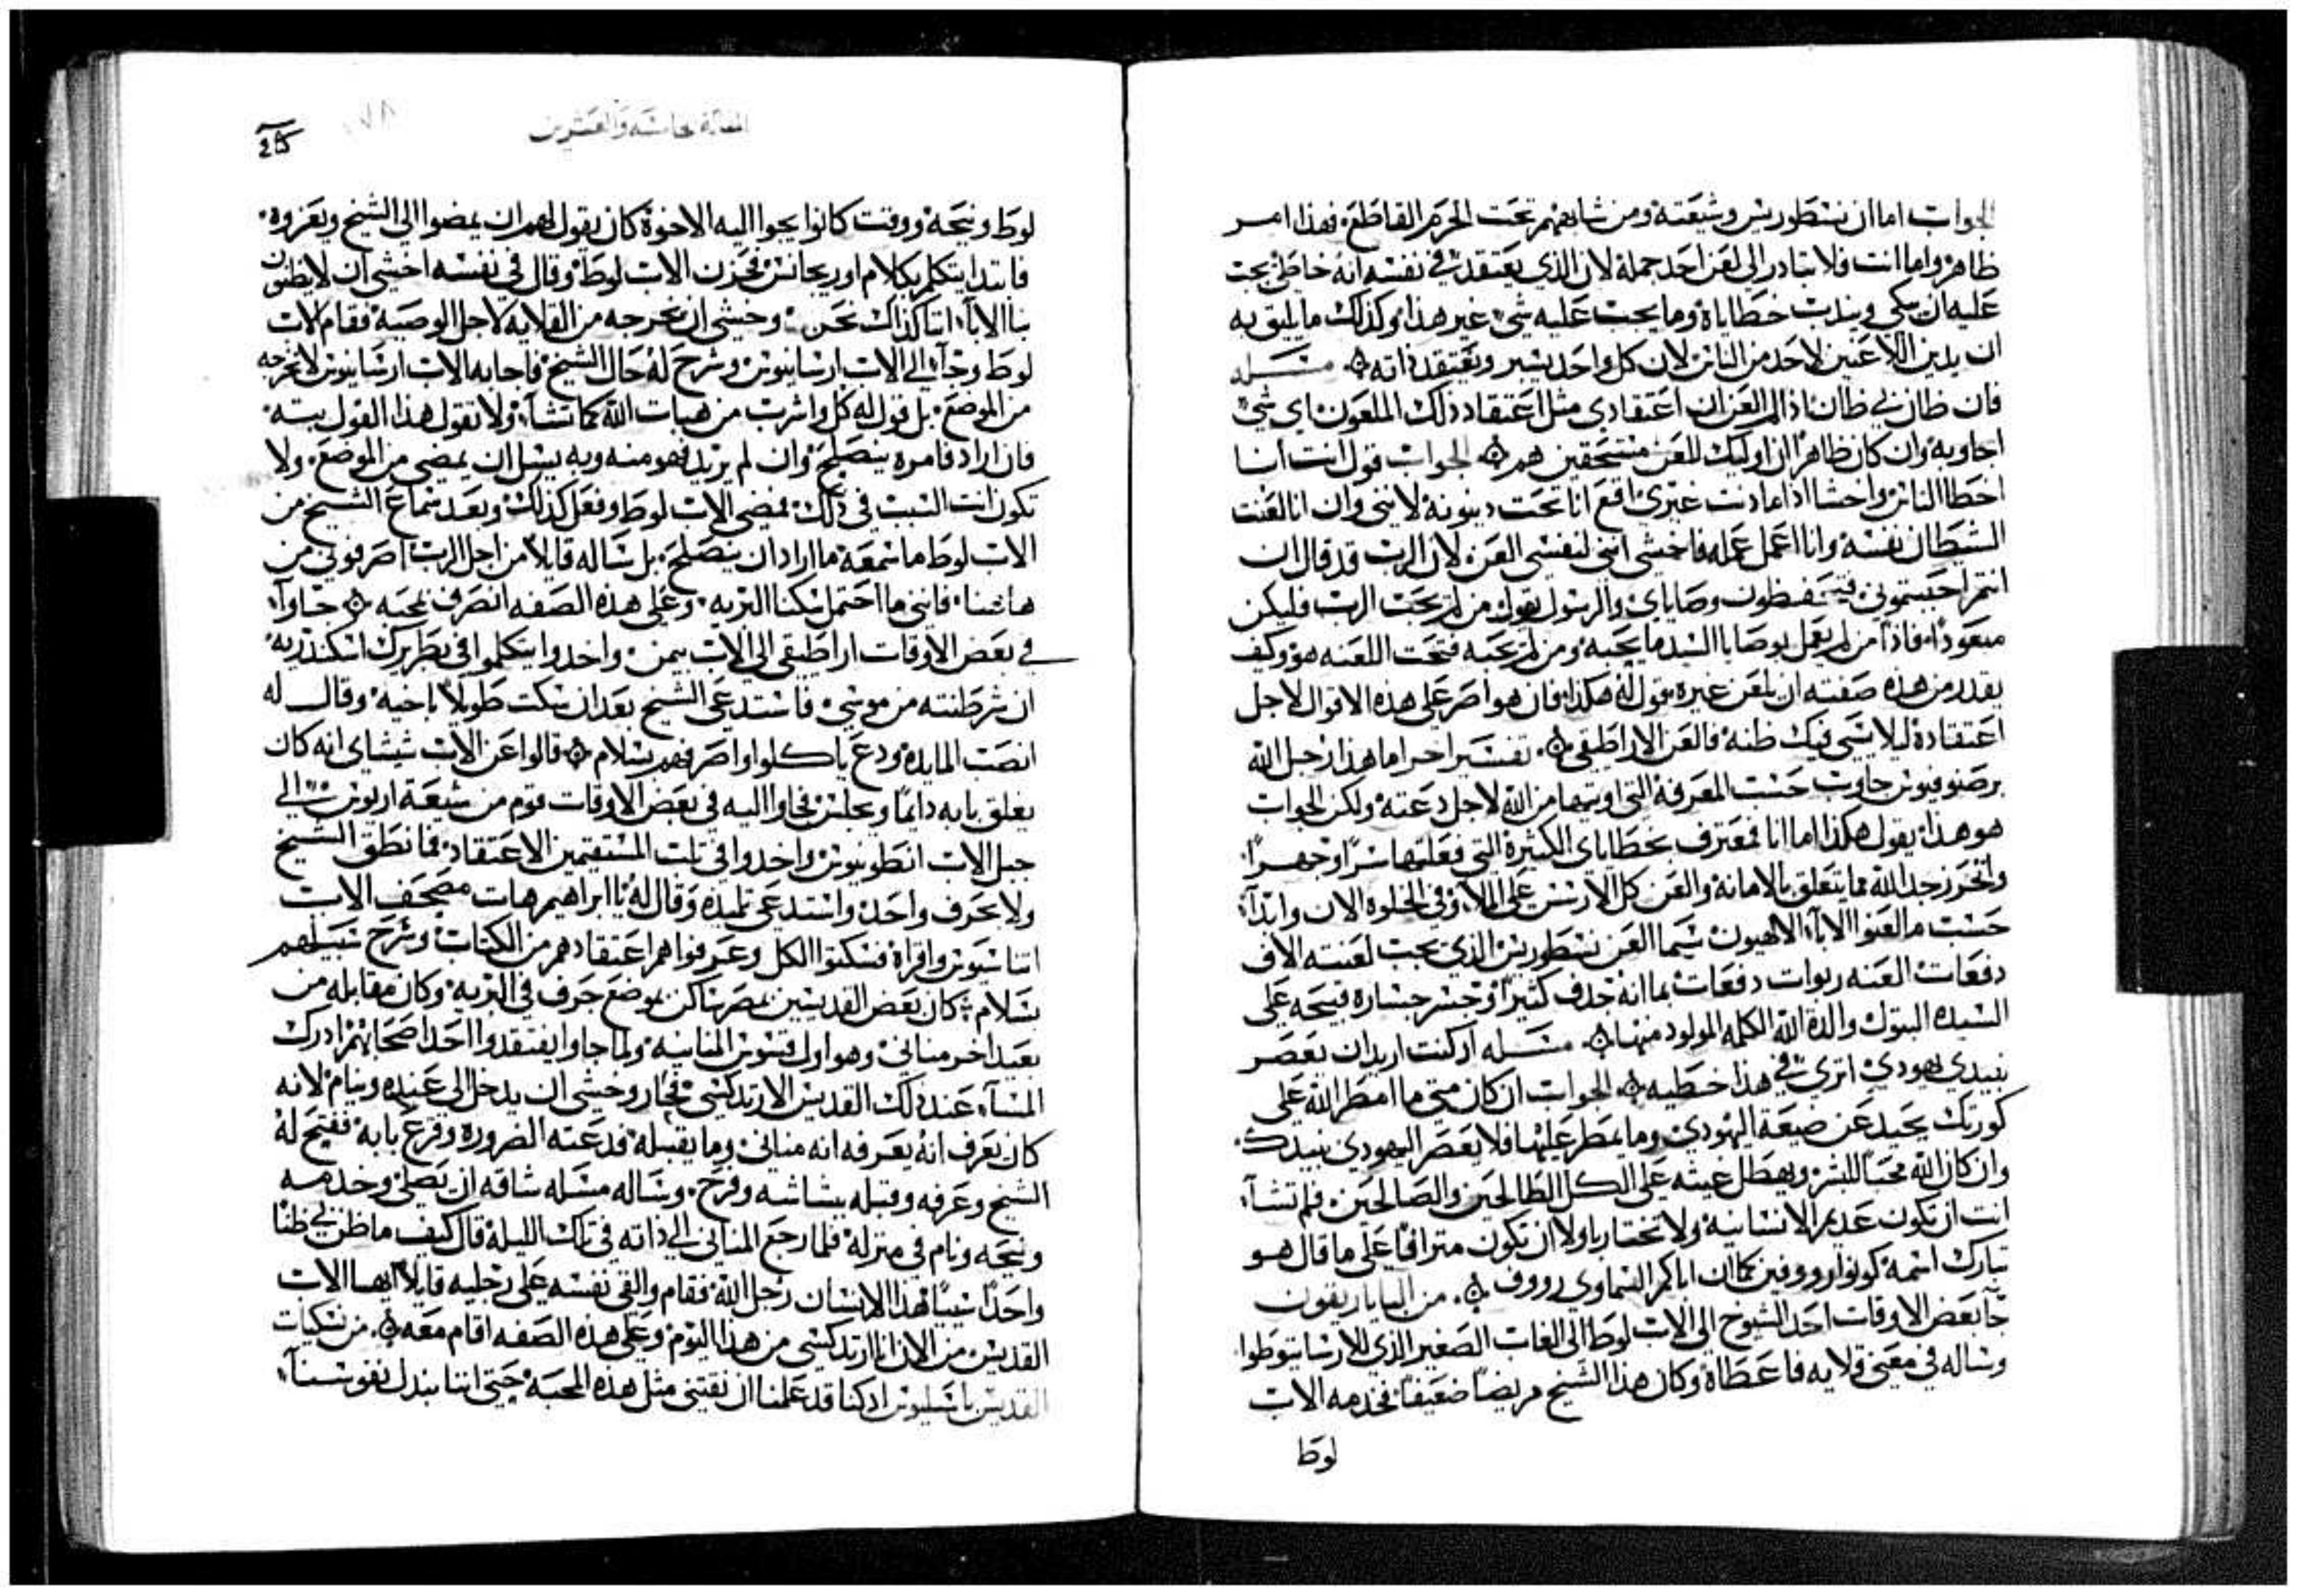 الجواب اما ان نسطوريس وشيعته ومن شابههم تحت الحرم القاطع، فهذا امر
ظاهر واما انت فلا تبادر الى لعن احد جملة لان الذي يعتقد في نفسه انه خاطئ يجب
عليه ان يبكي ويندب خطاياه وما يجب عليه شي غير هذا وكذلك ما يليق به
ان يدين اللاعنين لاحد من الناس لان كل واحد يسبر ويعتقد ذاته مسله
فان ظان بي ظان اذا لم العن ان اعتقادي مثل اعتقاد ذلك الملعون اي شي
اجاوبه وان كان ظاهرا ان اوليك للعن مستحقين هم الجواب قول انت انا
اخطا الناس واخشا اذا ما دنت غيري اقع انا تحت دينونة لانني وان انا لعنت
الشيطان نفسه وانا اعمل عمله فاخشى انني لنفسي العن لان الرب قد قال ان
انتم احببتموني فستحفظون وصاياي والرسول يقول من لم يحب الرب فليكن
مبعودا، فاذا من لم يعمل بوصايا السيد ما يحبه ومن لم يحبه فتحت اللعنه هو وكيف
يقدر من هذه صفته ان يلعن غيره بقول له هكذا، فان هو اصر على هذه الاقوال لاجل
اعتقاده ليلا يسي فيك ظنه فالعن الاراطيقي تفسير اخر اما هذا رجل الله
برصنوفيوس جاوب حسب المعرفة التي اوتيها من الله لاجل دعته ولكن الجواب
هو هذا يقول هكذا اما انا فمعترف بخطاياي الكثيرة التي فعلتها سرا وجهرا
واتحرز جدا لله فما يتعلق بالامانة والعن كل الارسس على الملا وفي الخلوه الان وابدآ
حسب ما لعنوا الابآ الالهيون سيما العن نسطوريس الذي يجب لعنته الاف
دفعات العنه ربوات دفعات بما انه جدف كثيرا وجسر جساره قبيحه على
السيده البتول والدة الله الكلمه المولود منها مسله ان كنت اريد ان يعصر
نبيدي يهودي اترى في هذا خطيه الجواب ان كان متى ما امطر الله على
كورتك يحيد عن ضيعة اليهودي وما يمطر عليها فلا يعصر اليهودي نبيدك
وان كان الله محبا للبشر ويهطل غيثه على الكل الطالحين والصالحين فلم تشآ
انت ان تكون عديم الانسانية ولا تختار باولا ان تكون متراففا على ما قال هو
تبارك اسمه كونوا رووفين كما ان اباكم السماوي رووف من الباباريقون
جآ بعض الاوقات احد الشيوخ الى الاب لوط الى الغاب الصغير الذي للارسانيوطوا
وساله في معنى قلايه فاعطاه وكان هذا الشيخ مريضا ضعيفا فخدمه الاب
لوط
المقالة الخامسه والعشرين
25
لوط ونيحه ووقت كانوا يجوا اليه الاخوة كان يقول لهم ان يمضوا الى الشيخ ويعزوه
فابتدا يتكلم بكلام اوريجانس فحزن الاب لوط وقال في نفسه اخشى ان لا يظنون
بنا الابآ اننا كذاك نحن وخشي ان يخرجه من القلايه لاجل الوصية فقام الاب
لوط وجآ الى الاب ارسانيوس وشرح له حال الشيخ فاجابه الاب ارسانيوس لا تخرجه
من الموضع بل قول له كل واشرب من هبات الله كما تشآ ولا تقول هذا القول بتة
فان اراد فامره ينصلح وان لم يريد فهو منه وبه يسل ان يمضي من الموضع ولا
تكون انت السبب في ذلك فمضى الاب لوط وفعل كذلك وبعد سماع الشيخ من
الاب لوط ما سمعه ما اراد ان ينصلح بل ساله قايلا من اجل الرب اصرفوني من
هاهنا فانني ما احتمل سكنا البريه وعلى هذه الصفه انصرف بمحبه جاوآ
في بعض الاوقات اراطيقى الى الاب بيمن واخدوا يتكلموا في بطريرك اسكندريه
ان شرطنته من موسى فاستدعى الشيخ بعد ان سكت طويلا باخيه وقال له
انصب المايده ودع ياكلوا واصرفهم بسلام قالوا عن الاب شيشاي انه كان
يغلق بابه دايما ويجلس فجاوا اليه في بعض الاوقات قوم من شيعة اريوس الى
جبل الاب انطونيوس واخدوا في تلب المستقيمين الاعتقاد فما نطق الشيخ
ولا بحرف واحد واستدعى تلميده وقال له يا ابراهيم هات مصحف الاب
اتناسيوس واقراه فسكتوا الكل وعرفوا هم اعتقادهم من الكتاب وشرح سبيلهم
بسلام كان بعض القديسين بمصر ساكن بموضع جوف في البريه وكان مقابله من
بعيد اخر مناني وهو اول قسوس المنانيه ولما جاوا يفتقدوا احد اصحابهم ادرك
المسآ عند ذلك القديس الارتدكسي فحار وخشي ان يدخل الى عنده وينام لانه
كان يعرف انه يعرفه انه مناني وما يقبله فدعته الضروره وقرع بابه ففتح له
الشيخ وعرفه وقبله ببشاشه وفرح وساله مسله شاقه ان يصلي وخدمه
ونيحه ونام في منزله فلما رجع المناني الى ذاته في تلك الليله قال كيف ما ظن بي ظنا
واحدا سيا فهذا الانسان رجل الله فقام والقى نفسه على رجليه قايلا ايها الاب
القديس من الان انا ارتدكسي من هذا اليوم وعلى هذه الصفه اقام معه من نسكيات
القديس باسيليوس ان كنا قد عملنا ان نقتني مثل هذه المحبه حتى اننا نبدل نفوسنآ